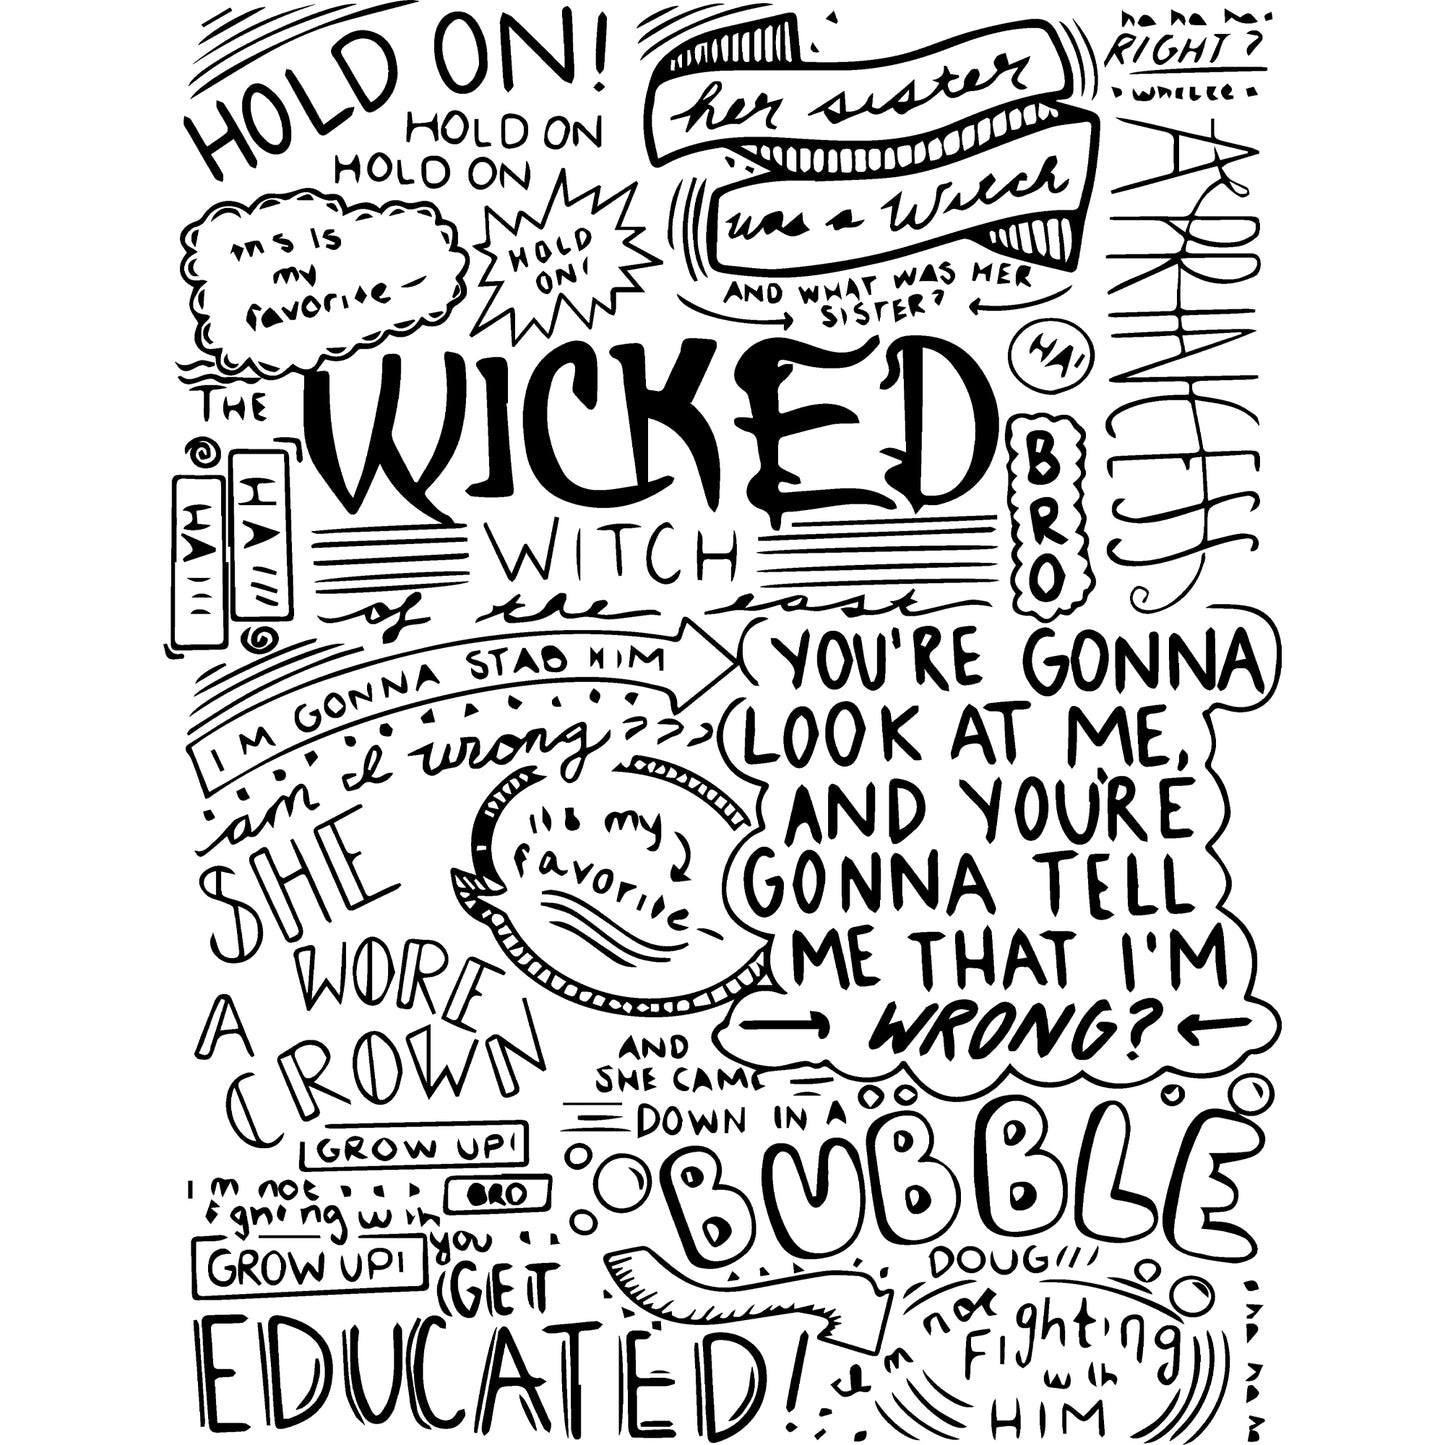 HOLD ON!
HOLD ON
HOLD ON
her sister
was a witch
ha ha ha.
RIGHT?
A PRINCESS
my
favorite
HOLD
ON!
AND WHAT WAS HER
SISTER?
HA!
THE
WICKED
WITCH
of the east
HA
HA
BRO
I'M GONNA STAB HIM
am I wrong???
YOU'RE GONNA
LOOK AT ME,
AND YOU'RE
GONNA TELL
ME THAT I'M
WRONG?
my
favorite
SHE
WORE
A
CROWN
AND
SHE CAME
DOWN IN A
BUBBLE
DOUG!!!
GROW UP!
I'm not
BRO
fighting with
you
GROW UP!
GET
EDUCATED!
I'm
not
Fighting
with
HIM